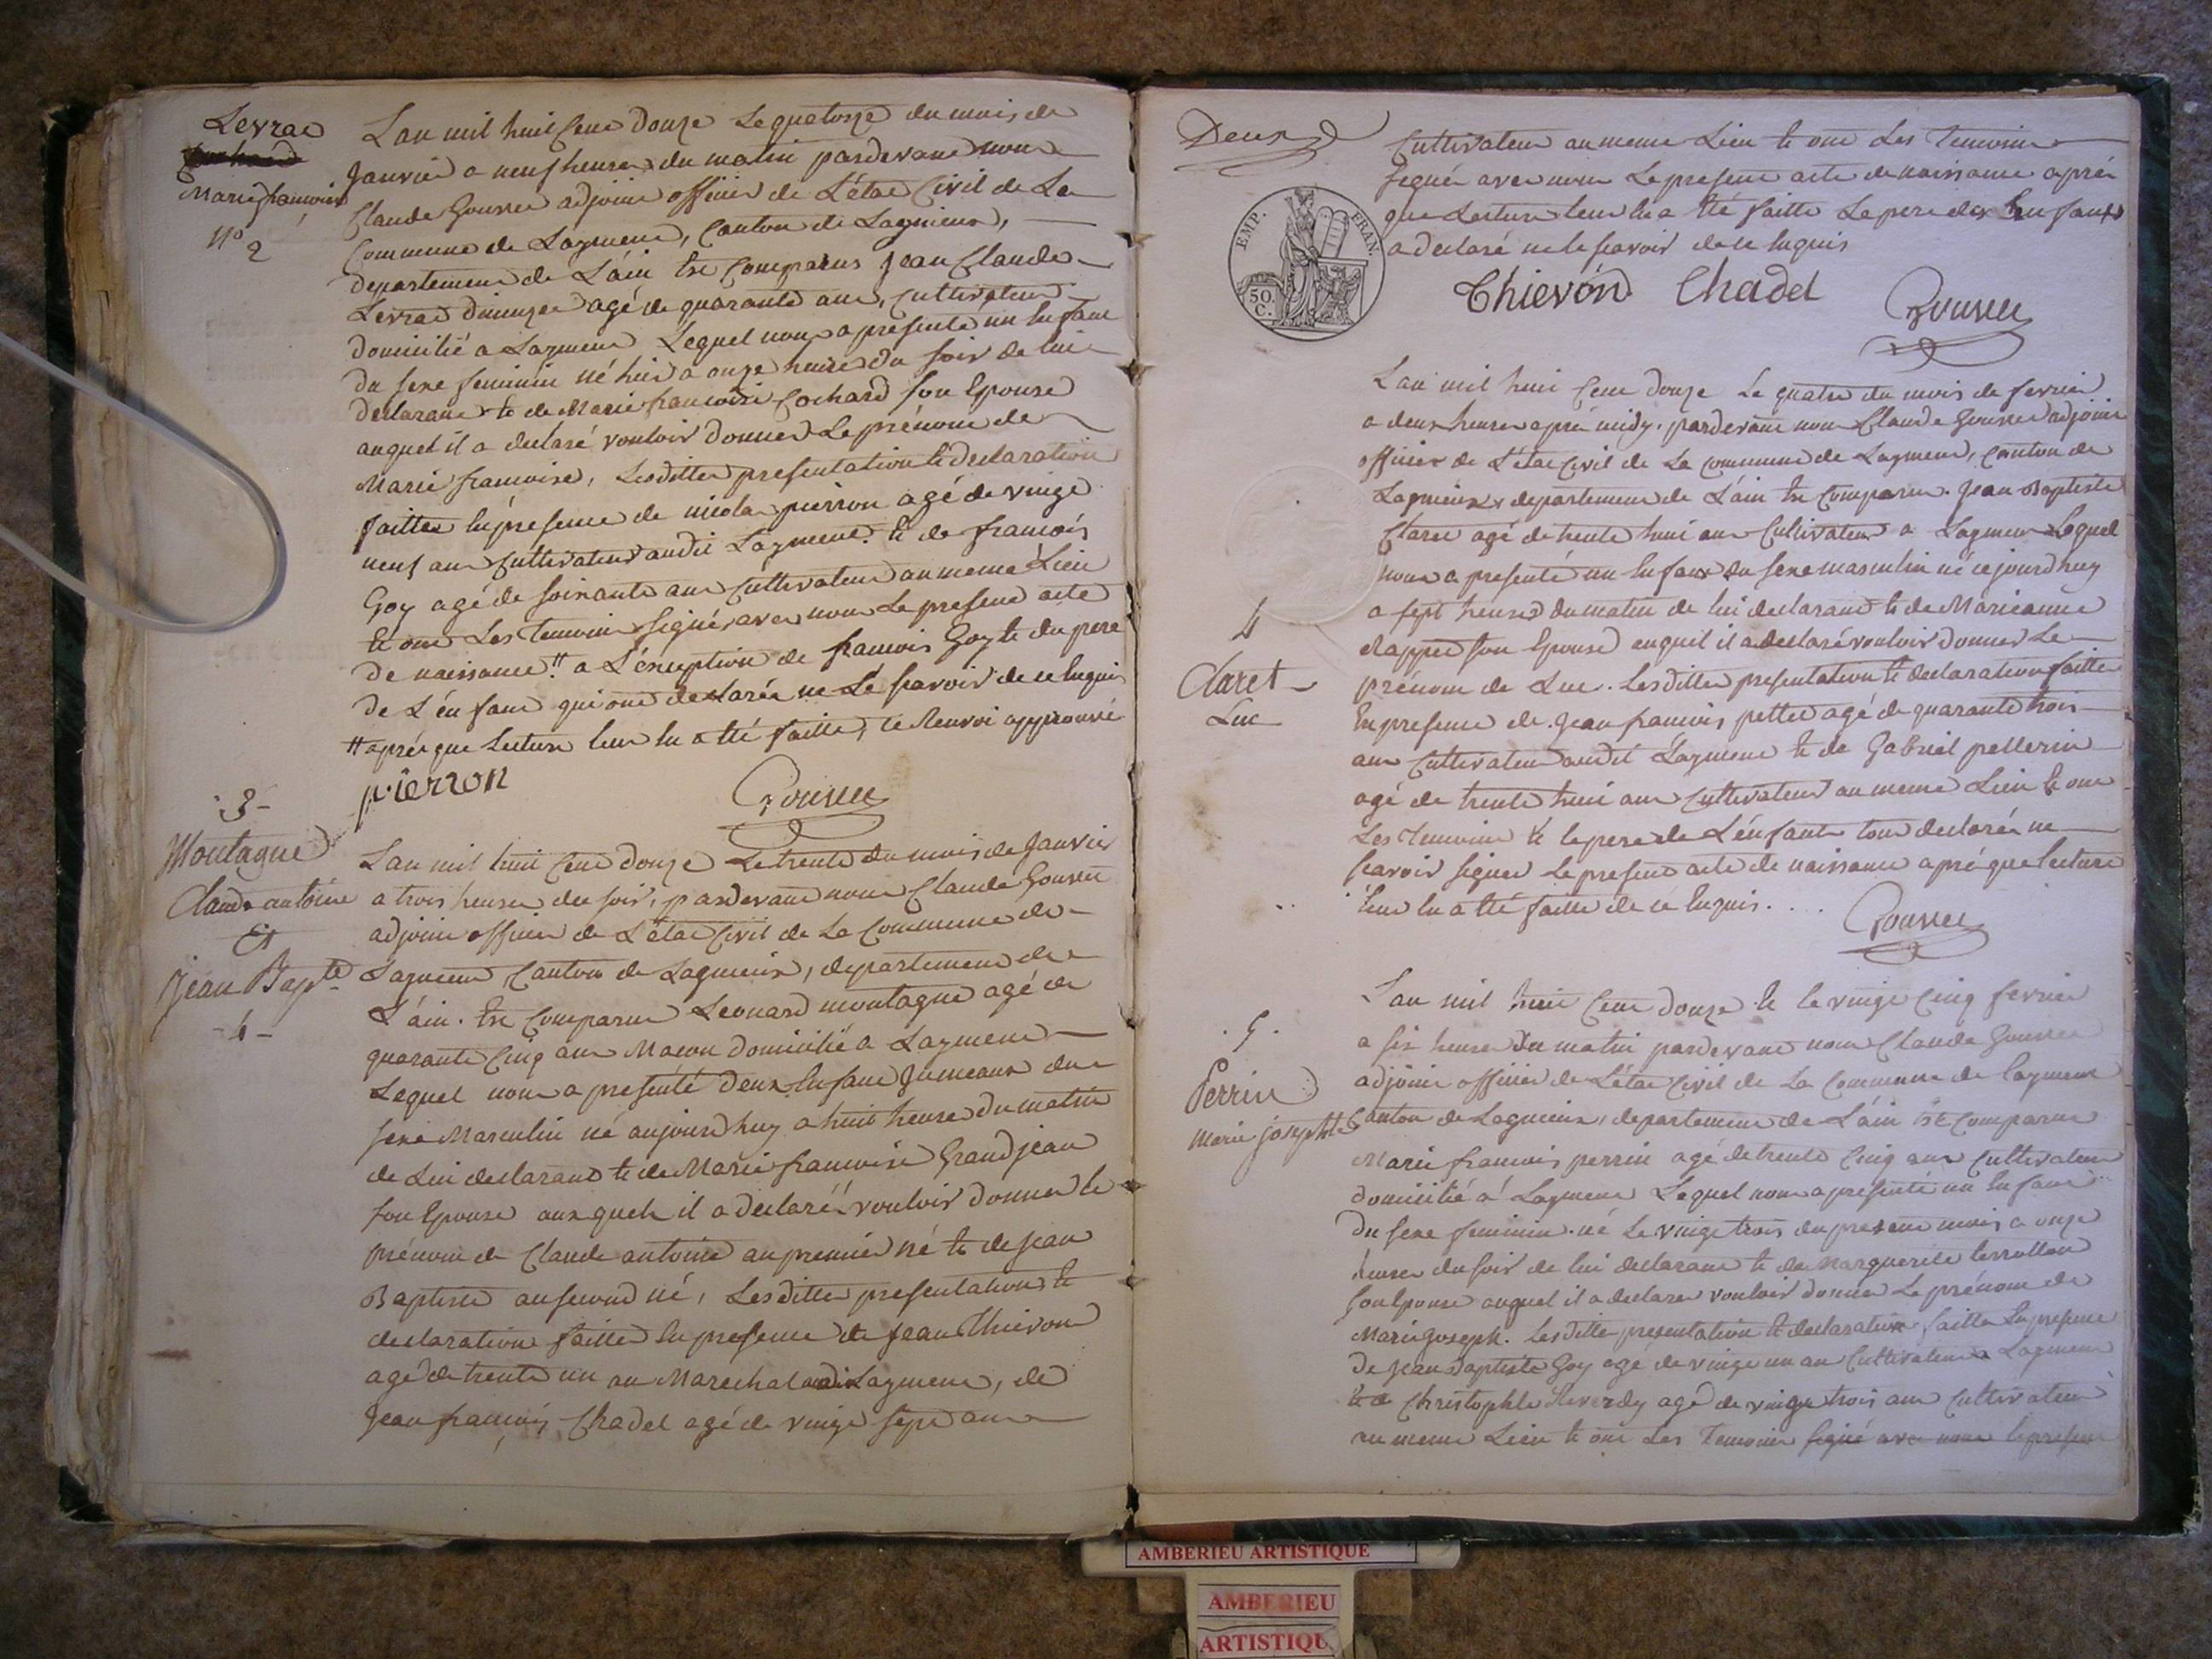 Levrat
Marie françoise
N° 2
L'an mil huit Cent Douze Le quatorze du mois de
Janvier a neuf heures du matin pardevant nous
Claude Gousset adjoint officier de L'état Civil de La
Commune de Lagneux, Canton de Lagnieux,
departement de L'ain Est Comparus Jean Claude
Levrat agé de quarante ans, Cultivateur
domicilié a Lagneux Lequel nous a presenté un Enfant
du sexe feminin né hier a onze heure du soir de lui
declarant Et de Marie francoise Cochard son Epouse
auquel il a declaré vouloir donner Le prénom de
Marie francoise, Lesdittes presentation Et declaration
faittes En presence de nicolas pierron agé de vingt
neuf ans Cultivateur audit Et de francois
Goy agé de soixante ans Cultivateur au meme Lieu
Et ont Les Temoins signé, avec nous Le present acte
de naissance # a L'éxception de francois Goy Et du pere
de L'énfant qui ont declarés ne Le savoir de ce Enquis
# aprés que Lecture leur En a Eté faitte, Le Renvoi approuvé
pierron
Gousset
3
Montagne
Claude antoine
Et
Jean Bapte
4
L'an mil huit Cent douze Le trente du mois de Janvier
a trois heures du soir, pardevant nous Claude Gousset
adjoint officier de L'état Civil de La Commune de
Canton de Lagnieux, departement de
L'ain. Est Comparus Leonard montagne agé de
quarante Cinq ans Macon domicilié a
Lequel nous a presenté deux Enfant Jumeaux du
sexe Masculin né aujourd'huy a huit heure du matin
de Lui declarant Et de Marie francoise Grandjean
son Epouse auxquels il a declaré vouloir donner le
prénom de Claude antoine au premier né Et de Jean
Baptiste au second né, Lesdittes presentation Et
declaration faitte En presence de Jean Thievon
agé de trente un an Marechal audit de
Jean francois Chadel agé de vingt sept ans
Deux
EMP. FRAN.
50. C.
Cultivateur au meme Lieu Et ont Les Temoins
signés avec nous Le present acte de naissance aprés
que Lecture leur En a Eté faitte Le pere des Enfants
a declaré ne le savoir de ce Enquis
Thievon Chadel
Gousset
4
Claret
Luc
L'an mil huit Cent douze Le quatre du mois de fevrier
a deux heures apré midy. pardevant nous Claude Gousset adjoint
officier de L'état Civil de La Commune de Canton de
Lagnieux departement de L'ain Est Comparus. Jean Baptiste
Claret agé de trente huit ans Cultivateur a Lequel
nous a presenté un Enfant du sexe masculin né cejourdhuy
a sept heures du matin de lui declarant Et de Marieanne
son Epouse auquel il a declaré vouloir donner Le
prénom de Luc. Lesdittes presentation Et declaration faitte
En presence de Jean francois agé de quarante trois
ans Cultivateur audit Et de Gabriel pellerin
agé de trente huit ans Cultivateur au meme Lieu Et ont
Les Temoins Et le pere de L'énfant tous declarés ne
savoir signer Le present acte de naissance apré que Lecture
leur En a Eté faitte de ce Enquis. . .
Gousset
5
Perrin
Marie josephte
L'an mil huit Cent douze Et le vingt Cinq fevrier
a six heures du matin pardevant nous Claude Gousset
adjoint officier de L'état Civil de La Commune de
Canton de Lagnieux, departement de L'ain Est Comparus
Marie francois perrin agé de trente Cinq ans Cultivateur
domicilié a Lequel nous a presenté un Enfant
du sexe feminin. né Le vingt trois du present mois a onze
heures du soir de lui declarant Et de Marguerite
son Epouse auquel il a declarer vouloir donner Le prénom de
Marie Joseph. Lesditte presentation Et declaration faitte En presence
de Jean Baptiste Goy agé de vingt un an Cultivateur a
Et de Christophle Reverdy agé de vingt trois ans Cultivateur
au meme Lieu Et ont Les Temoins signé avec nous le present
AMBERIEU ARTISTIQUE
AMBERIEU
ARTISTIQU